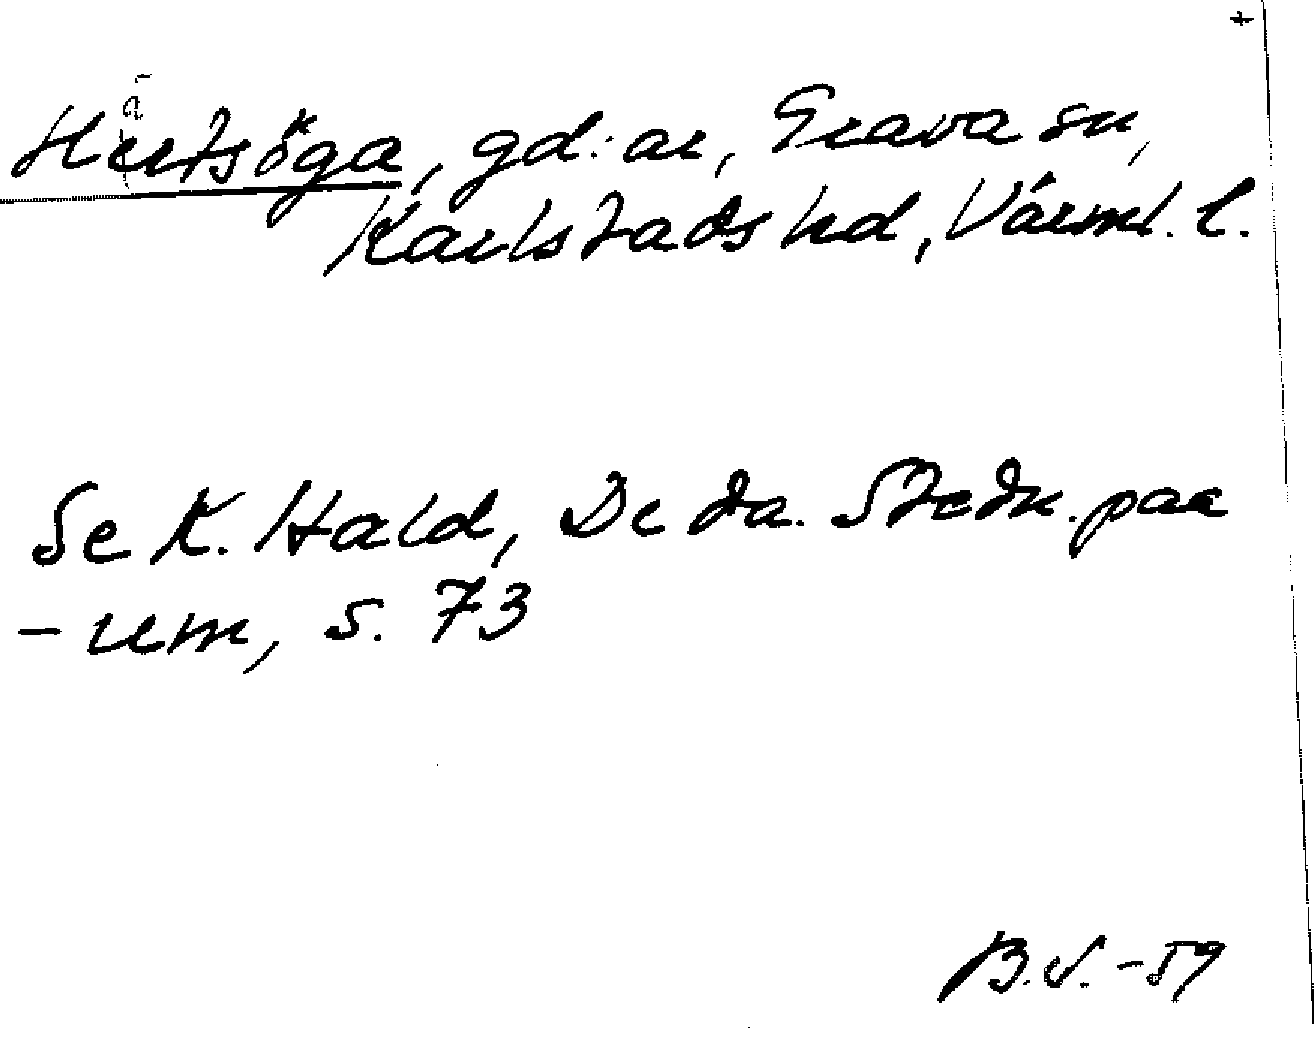 +
Hertsöga, gd:ar, Grava sn,
Karlstads hd, Värml. l.
Se K. Hald, De da. Stedn. paa
-um, s. 73
B.V.-59